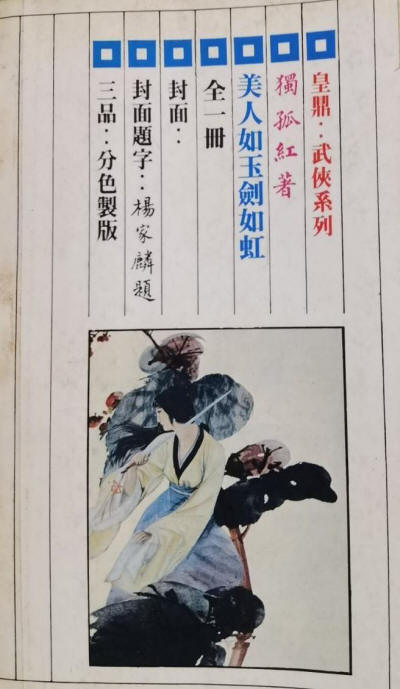 皇鼎：武俠系列
獨孤紅著
美人如玉劍如虹
全一冊
封面：
封面題字：楊家麟題
三品：分色製版